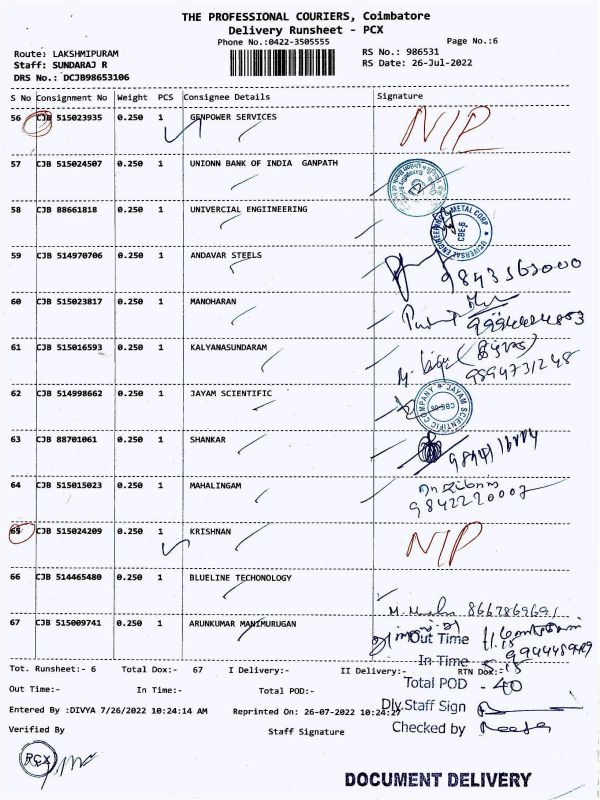 THE PROFESSIONAL COURIERS, Coimbatore
Delivery Runsheet - PCX
Phone No.:0422-3505555
Page No.:6
Route: LAKSHMIPURAM
RS No.: 986531
Staff: SUNDARAJ R
RS Date: 26-Jul-2022
DRS No.: DCJB98653106
S No Consignment No Weight PCS Consignee Details Signature
56 CJB 515023935 0.250 1 GENPOWER SERVICES NIP
57 CJB 515024507 0.250 1 UNIONN BANK OF INDIA GANPATH
58 CJB 88661818 0.250 1 UNIVERCIAL ENGIINEERING
UNIVERSAL ENGINEERING & METAL CORP
59 CJB 514970706 0.250 1 ANDAVAR STEELS
60 CJB 515023817 0.250 1 MANOHARAN
61 CJB 515016593 0.250 1 KALYANASUNDARAM
9894731248
62 CJB 514998662 0.250 1 JAYAM SCIENTIFIC
JAYAM SCIENTIFIC COMPANY
63 CJB 88701061 0.250 1 SHANKAR
64 CJB 515015023 0.250 1 MAHALINGAM
9842220007
65 CJB 515024209 0.250 1 KRISHNAN NIP
66 CJB 514465480 0.250 1 BLUELINE TECHONOLOGY
67 CJB 515009741 0.250 1 ARUNKUMAR MANIMURUGAN
Out Time 11.15
In Time 5.15
Tot. Runsheet:- 6 Total Dox:- 67 I Delivery:- II Delivery:- RTN Dox:-
Total POD - 40
Out Time:- In Time:- Total POD:-
Dly.Staff Sign
Entered By :DIVYA 7/26/2022 10:24:14 AM Reprinted On: 26-07-2022 10:24:27
Checked by
Verified By Staff Signature
PCX
DOCUMENT DELIVERY